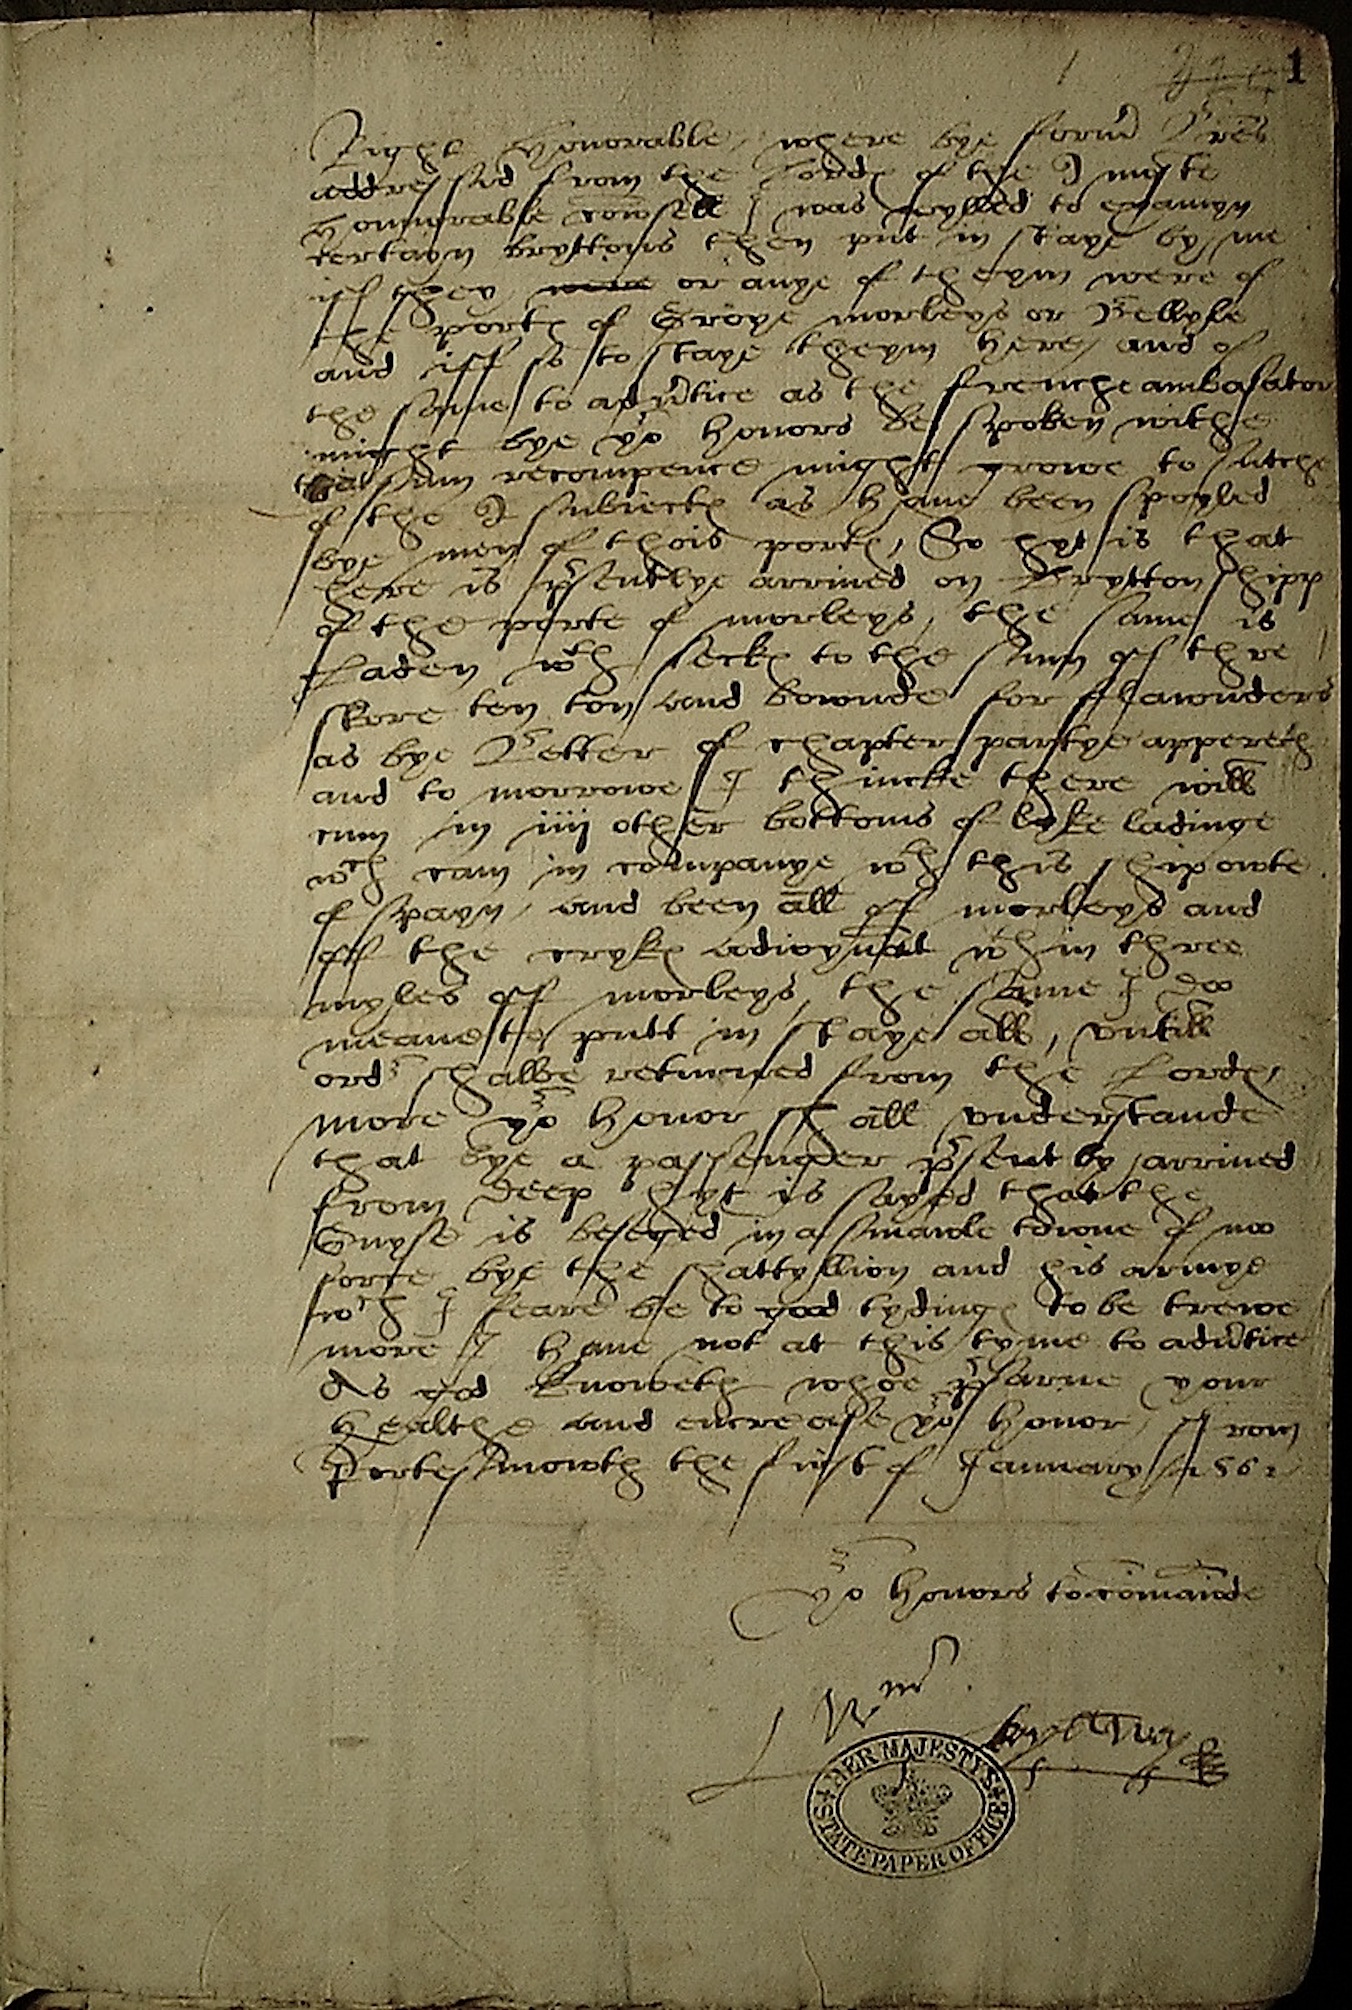 1
1
Right honorable, where bye form̃ l̃res
addressid from the Lordes of the Q moste
honnorable cownsell I was wylled to examyn
certayn bryttons then put in staye by me
iff they were or anye of theym were of
the portes of Groye morleys or Bellyle
and iff so to staye theym here, and of
the same to adṽtice as the frenche ambasator
might bye yor honors be spoken withe
that sum recompence might growe to sutche
of the Q subiectes as have been spoyled
bye men of thois portes, So hyt is that
here is p̃sentlye arrived on Brytton shipp
of the porte of morleys, the same is
Laden wth seckes to the sum of thre
skore ten ton and bownde for flawnders
as bye Letter of chapter partye appereth
and to morrowe I thincke there will
cum in iiij other bottoms of lyke ladinge
wch cam in companye wth this ship owte
of spayn, and been all of morleys and
off the crykes adioynãt wthin three
myles off morleys, the same I doo
meane to putt in staye all, untill
ordr shalbe returned from the Lordes,
more yor honor shall understande
that bye a passenger p̃sentby arrived
from Deep hyt is sayed that the
Guyse is beseged in a smawle towne of noo
force bye the shattyllion and his armye
wch I feare be to good tydinges to be trewe
more I have not at this tyme to adṽtice
As god knoweth whoe p̃sarve your
healthe and encrease yor honor, From
Portesmowth the first of January 1562
yor honors to com̃ande
Wm
HER MAJESTY'S
STATE PAPER OFFICE